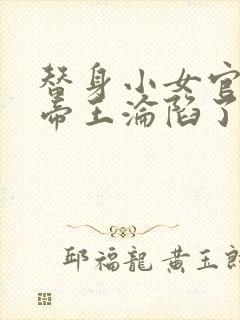 替身小女官
帝王淪陷了
邱福龍 黃玉郎